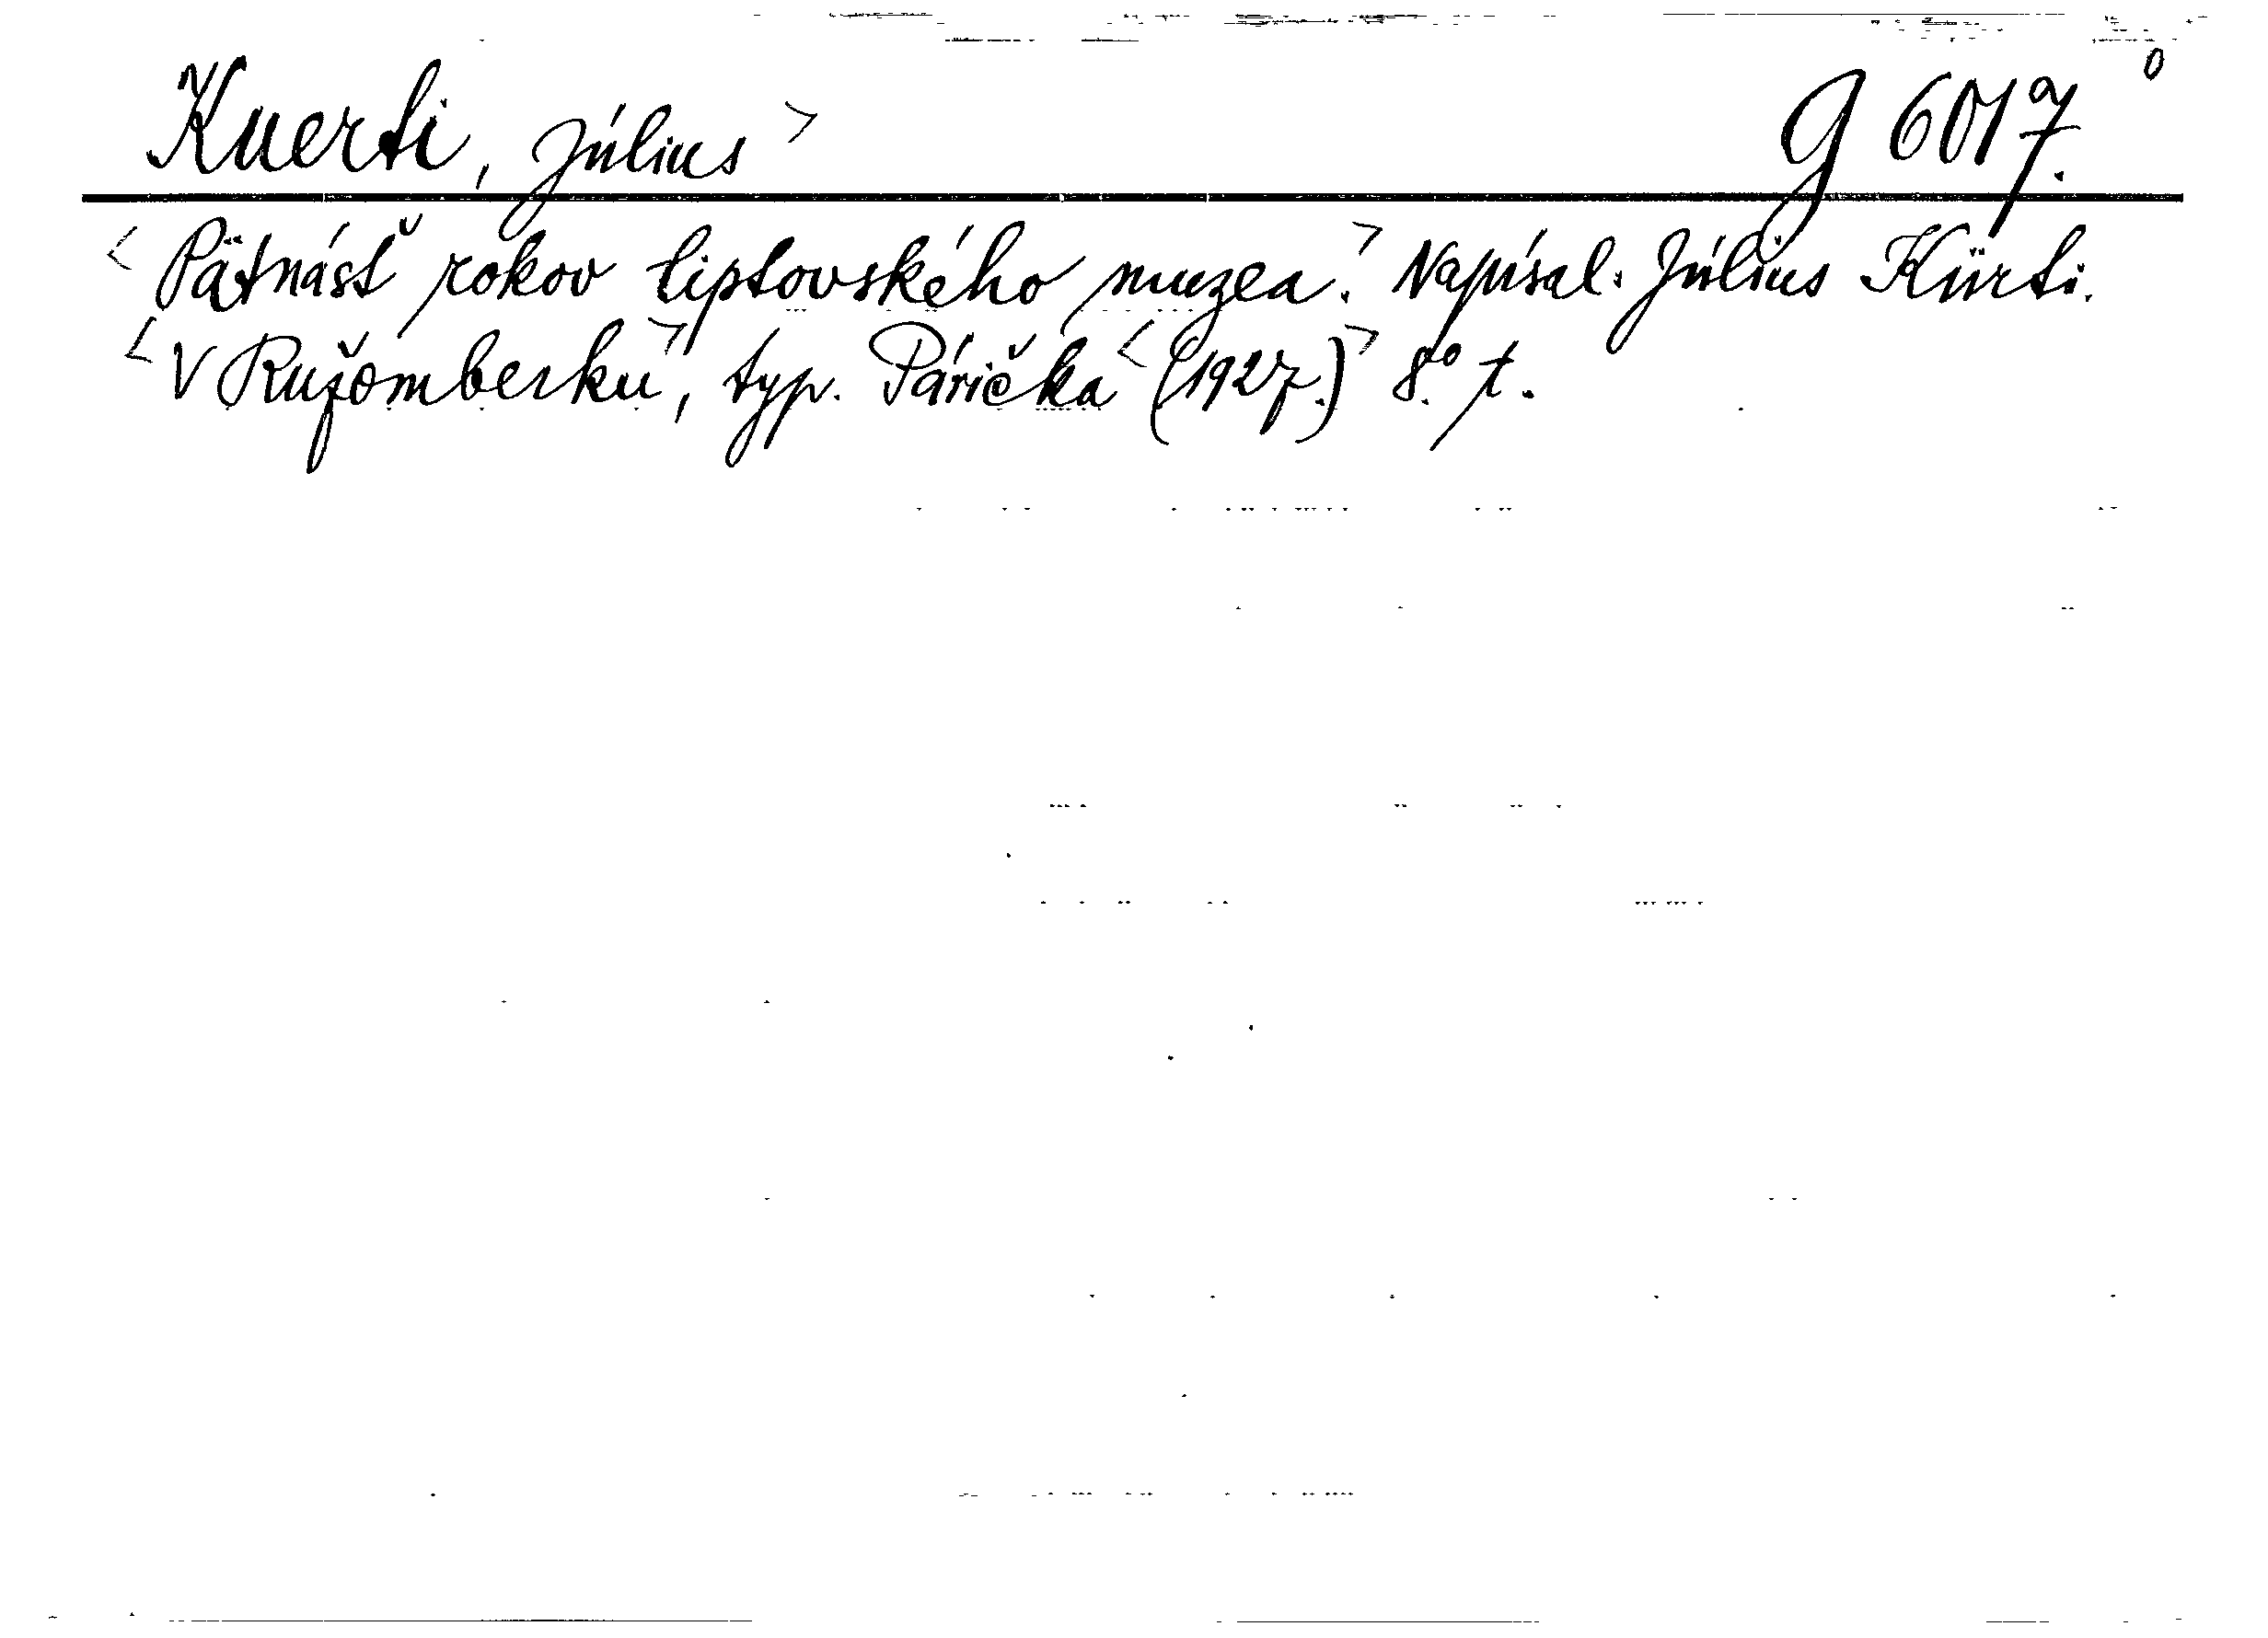 Kuerti, Július> g 6017. 0
<Pätnásť rokov liptovského muzea.> Napísal. Július Kürti.
<V Ružomberku>, typ. Párička <(1927.)> 8.° t.